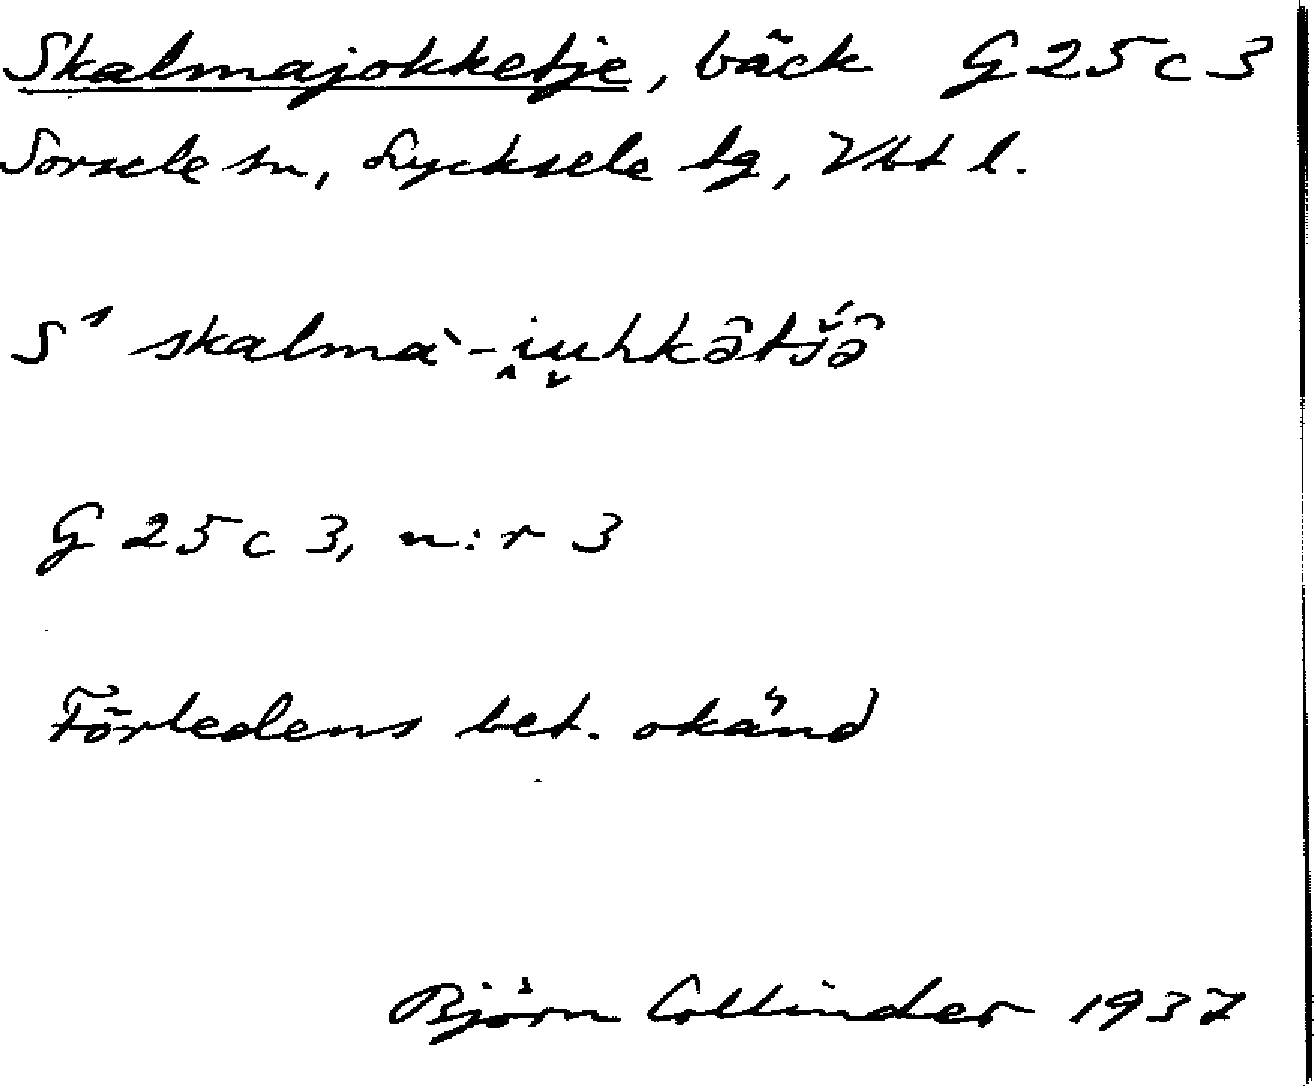 Skalmajokketje, bäck G 25 c 3
Sorsele sn, Lycksele lg, Vbt l.
S¹ skalmà-i̭u̬hkə̂tšə̂
G 25 c 3, n:r 3
Förledens bet. okänd
Björn Collinder 1937